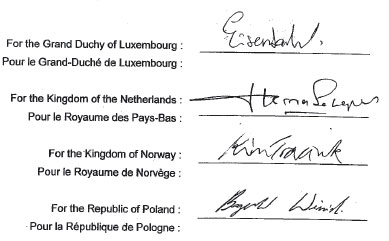 For the Grand Duchy of Luxembourg :
Pour le Grand-Duché de Luxembourg :
For the Kingdom of the Netherlands :
Pour le Royaume des Pays-Bas :
For the Kingdom of Norway :
Pour le Royaume de Norvège :
For the Republic of Poland :
Pour la République de Pologne :